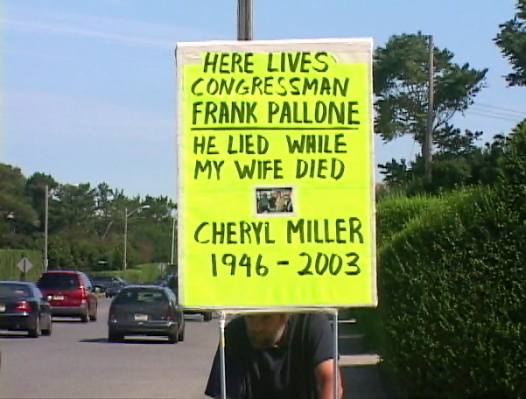 HERE LIVES
CONGRESSMAN
FRANK PALLONE
HE LIED WHILE
MY WIFE DIED
CHERYL MILLER
1946 - 2003